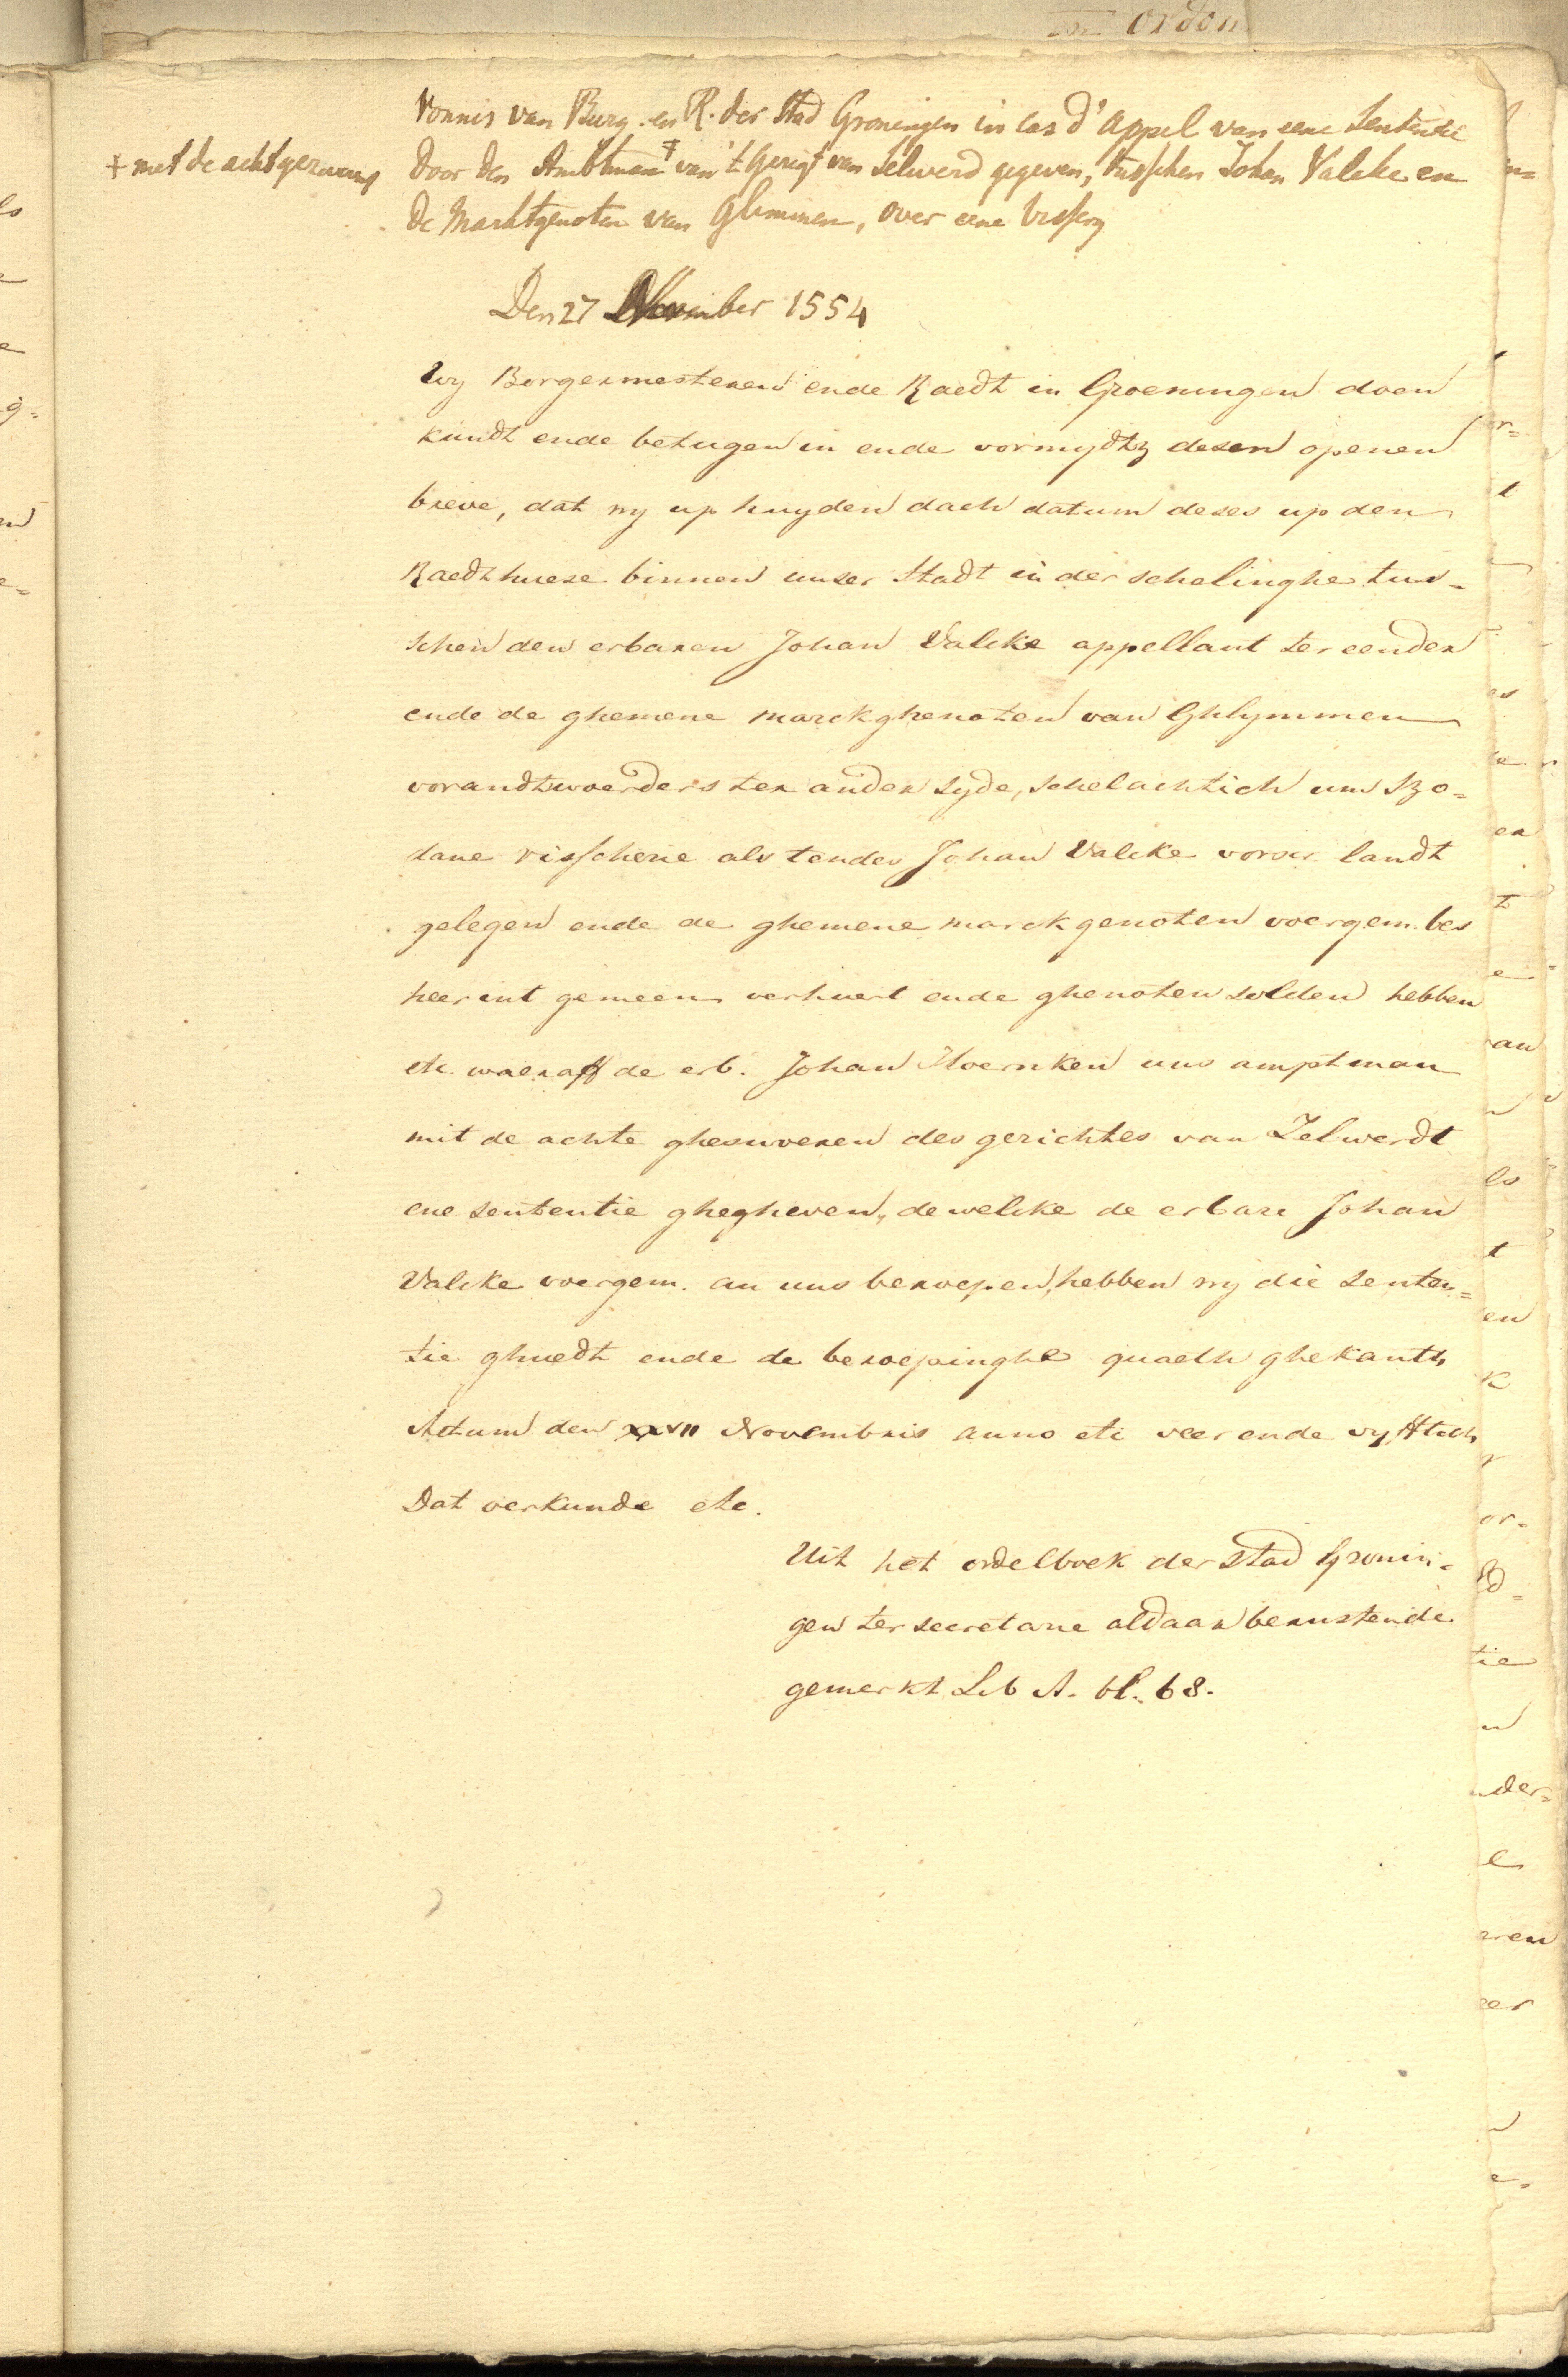 Vonnis van Burg. en R. der Stad Groningen in cas d'appel van eene Sententie
+ met de achtgezwoorens
door den Ambtman + van 't Gerigt van Selwerd gegeven, tusschen Johan Valcke en
de Marktgenoten van Glimmen, over eene vissery
Den 27 November 1554
Wy Borgermesteren ende Raedt in Groeningen doen
kundt ende betugen in ende vormydtz desen openen
breve, dat wy up huyden dach datum deses up den
Raedthuese binnen unser Stadt in der schelinghe tus-
schen den erbaren Johan Valcke appellant ter eender
ende de ghemene marckghenoten van Ghlymmen
vorandtwoerders ter ander syde, schelachtich um szo-
dane visscherie als tendes Johan Valcke vorscr. landt
gelegen ende de ghemene marckgenoten voergem. bes
heer int gemeen verhuert ende ghenoten solden hebben
etc. waeraff de erb. Johan Hoernken uns amptman
mit de achte ghesworen des gerichtes van Zelwerdt
ene sententie ghegheven, dewelcke de erbare Johan
Valcke voergem. an uns beroepen, hebben wy die senten-
tie ghuedt ende de beroepinghe quaeth ghekanth
Actum den xxvii Novembris anno etc veer ende vyfftich
Dat oerkunde etc.
Uit het ordelboek der stad Gronin-
gen ter secretarie aldaar berustende
gemerkt Lib A. bl. 68.